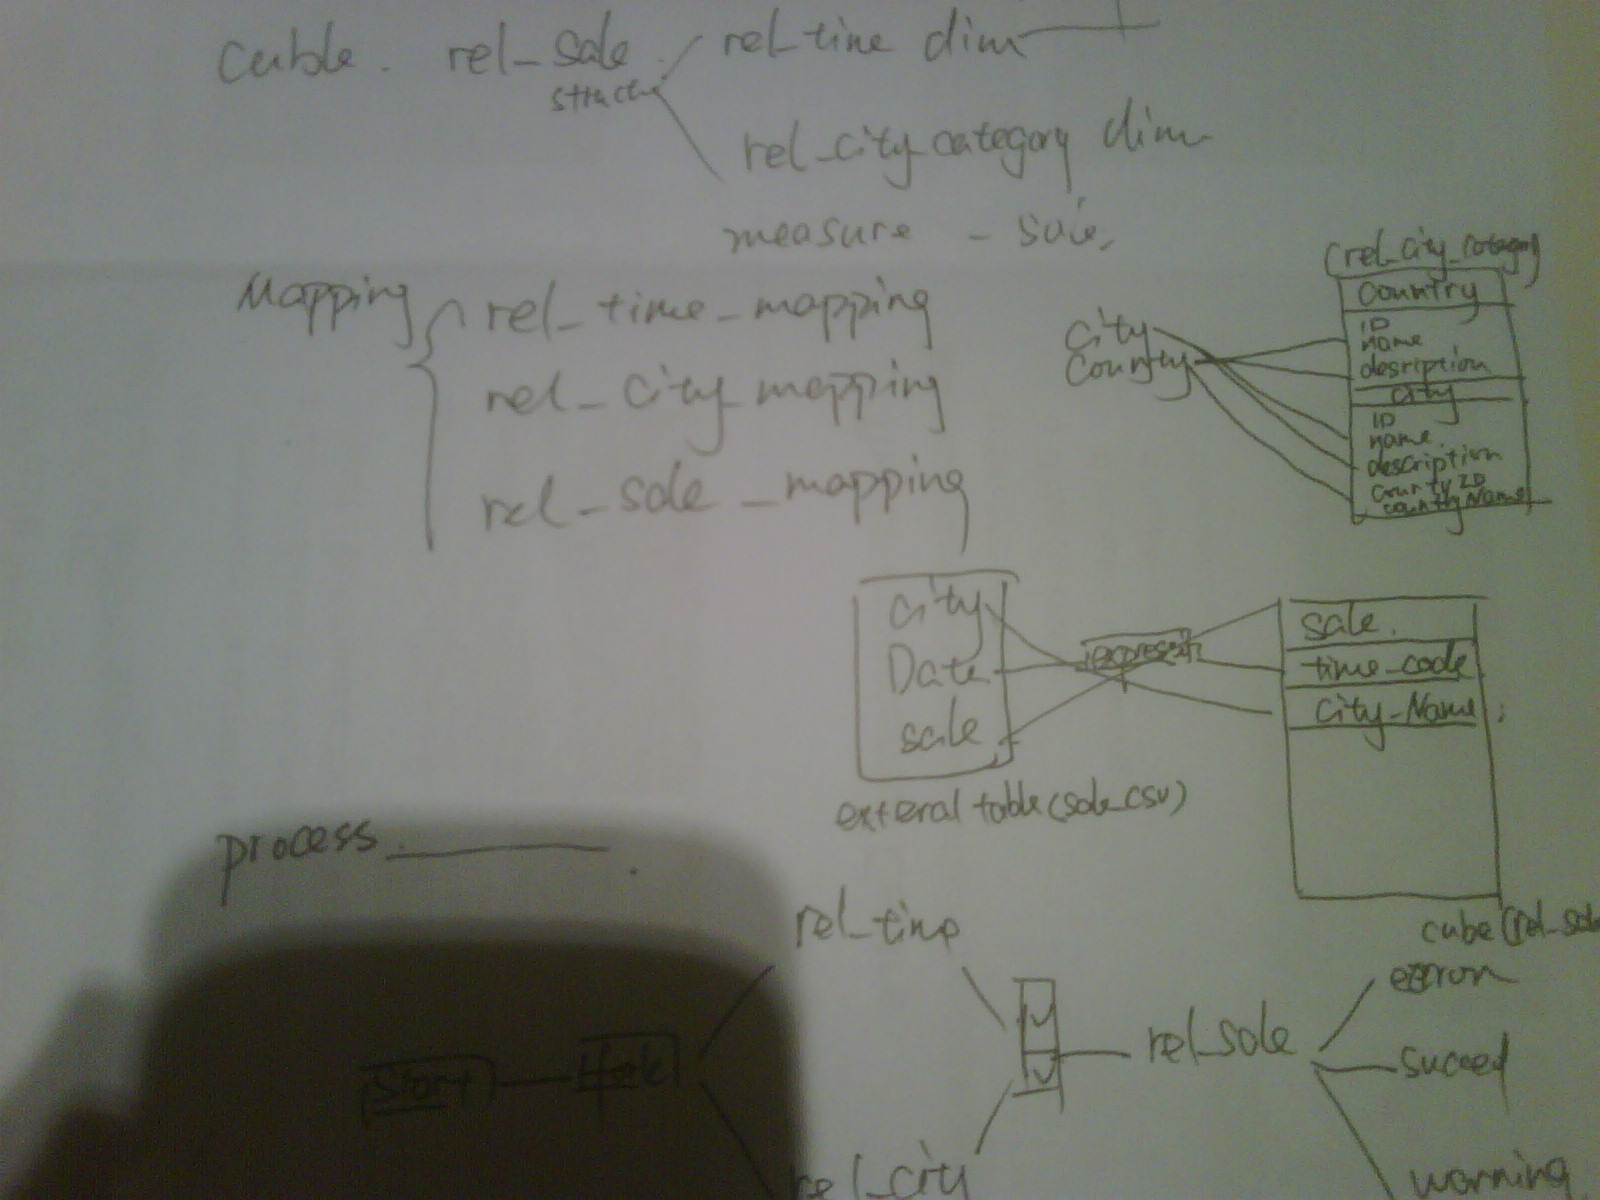 cuble. rel_sale. rel_time dim
struct
rel_city_category dim
measure - sale.
Mapping
rel_time_mapping
rel_city_mapping
rel_sale_mapping
(rel_city_category)
country
ID
name
desription
city
ID
name
description
country ID
country Name
city
country
city
Date
sale
exteral table (sale_csv)
sale.
time_code
city_Name
cube (rel_sale
process
start
rel_time
rel_city
rel_sale
succed
warning